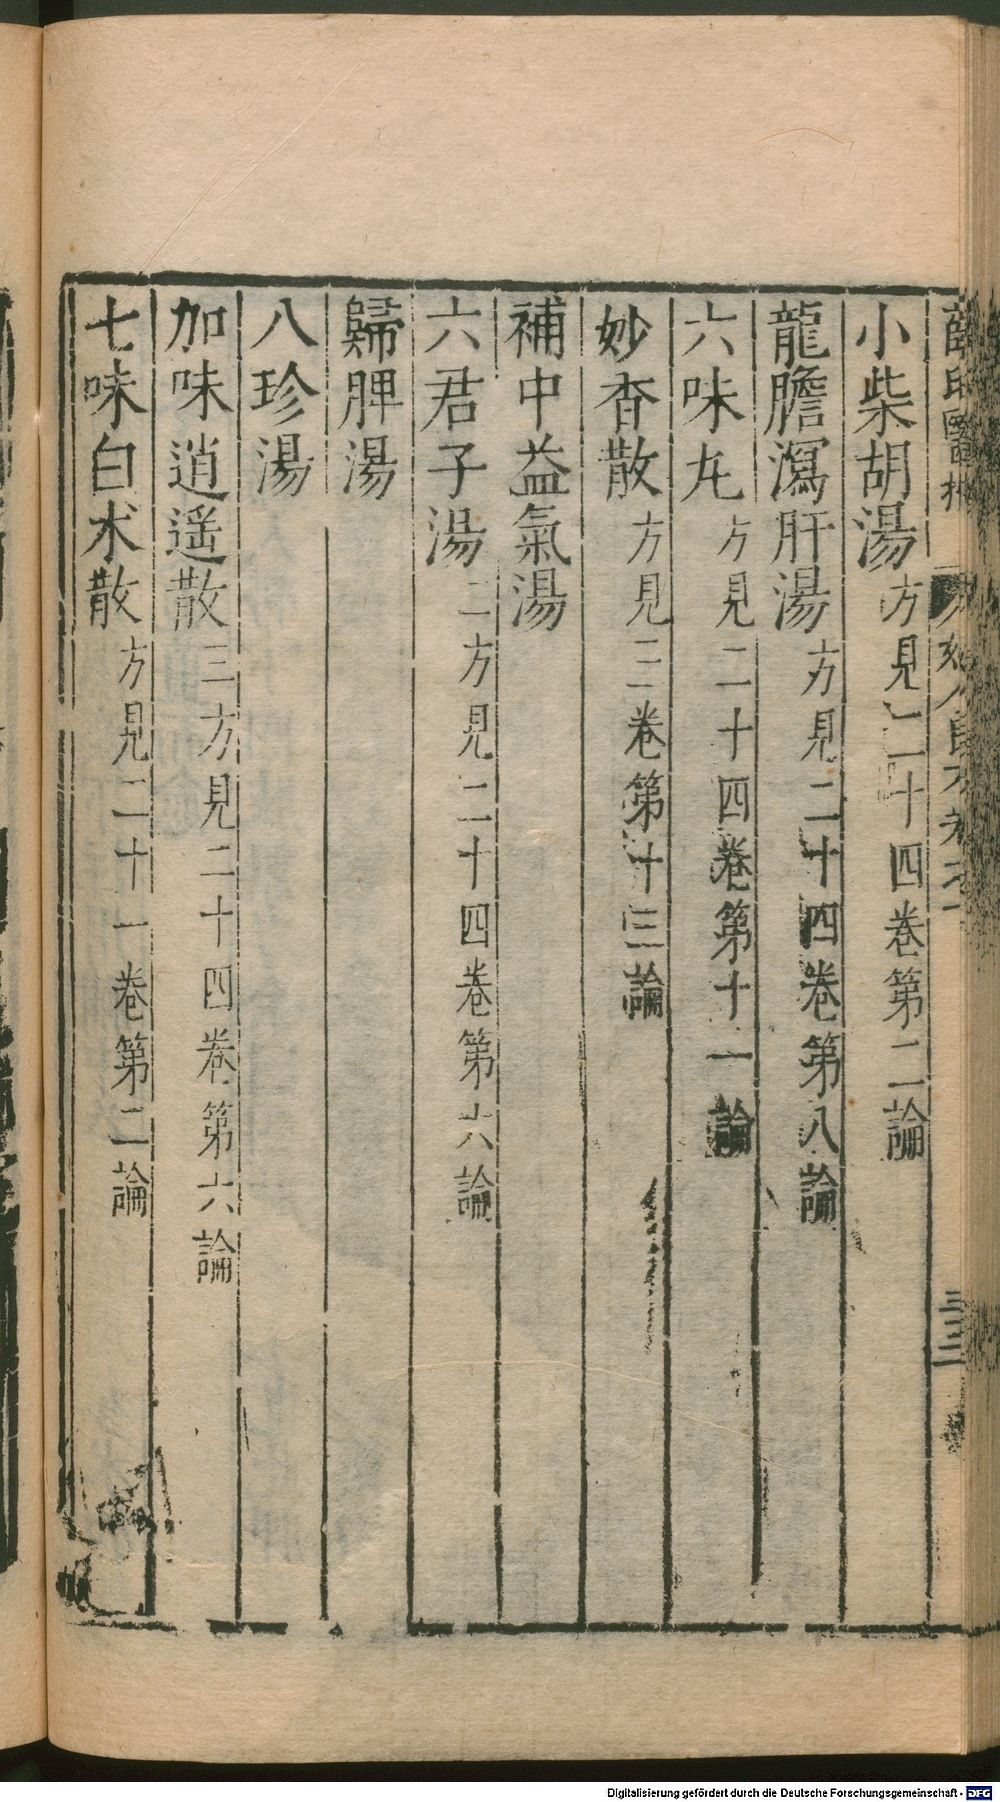 薛氏醫按
小柴胡湯方見二十四卷第二論
龍膽瀉肝湯方見二十四卷第八論
六味丸方見二十四卷第十一論
妙香散方見三卷第十三論
補中益氣湯
六君子湯二方見二十四卷第六論
歸脾湯
八珍湯
加味逍遙散三方見二十四卷第六論
七味白朮散方見二十一卷第二論
Digitalisierung gefördert durch die Deutsche Forschungsgemeinschaft - DFG